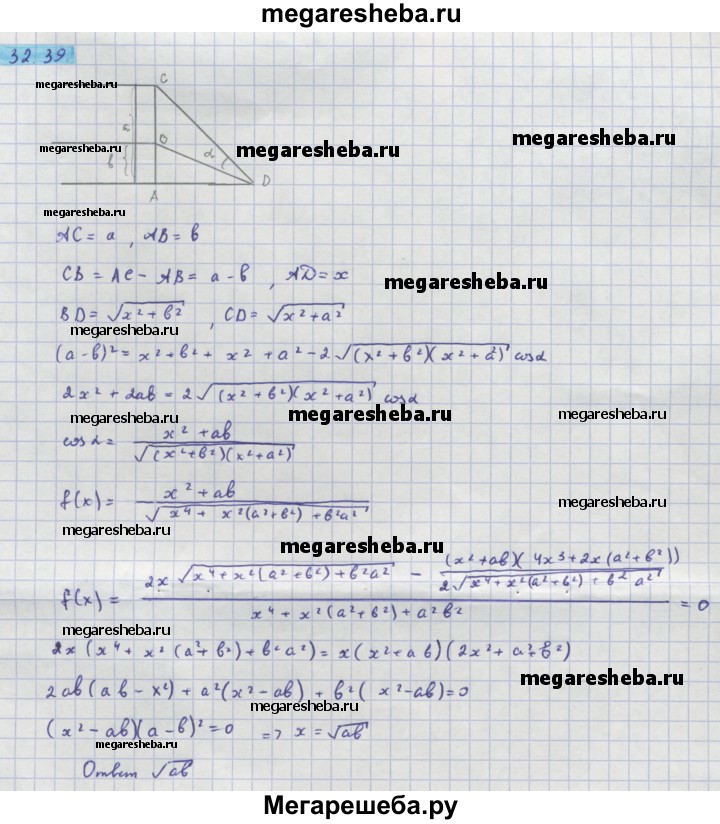 megaresheba.ru
32.39
C
megaresheba.ru
a
megaresheba.ru
megaresheba.ru O megaresheba.ru
в
α
D
A
megaresheba.ru
AC = a, AB = в
CB = AC - AB = a - в, AD = x
megaresheba.ru
BD = √(x² + в²), CD = √(x² + a²)
megaresheba.ru
(a-в)² = x² + в² + x² + a² - 2√((x² + в²)(x² + a²)) cosα
2x² + 2ab = 2√((x² + в²)(x² + a²)) cosα
megaresheba.ru megaresheba.ru
cosα = (x² + ab) / √((x²+в²)(x²+a²))
megaresheba.ru
f(x) = (x² + ab) / √(x⁴ + x²(a²+в²) + в²a²)
megaresheba.ru
megaresheba.ru
megaresheba.ru
f(x) = (2x√(x⁴+x²(a²+в²)+в²a²) - (x²+ab)(4x³+2x(a²+в²)) / (2√(x⁴+x²(a²+в²)+в²a²))) / (x⁴ + x²(a²+в²) + a²в²) = 0
megaresheba.ru
2x(x⁴ + x²(a²+в²) + в²a²) = x(x²+ab)(2x²+a²+в²)
2ab(ab - x²) + a²(x² - ab) + в²(x² - ab) = 0
megaresheba.ru
megaresheba.ru
(x² - ab)(a - в)² = 0 => x = √ab
megaresheba.ru
Ответ √ab
Мегарешеба.ру